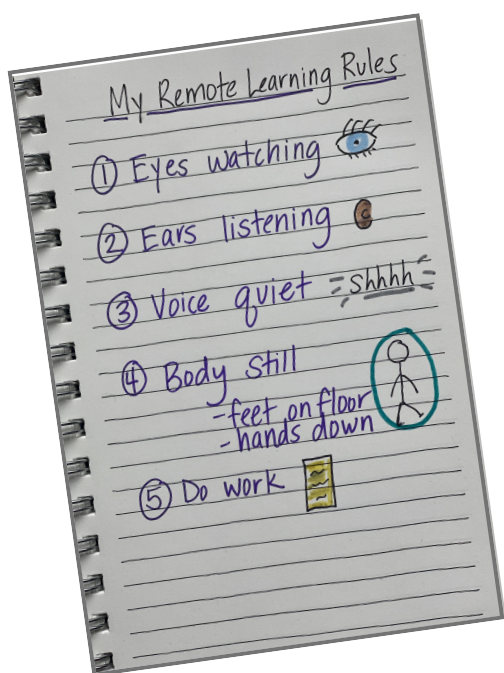 My Remote Learning Rules
① Eyes watching
② Ears listening
③ Voice quiet shhhh
④ Body still
-feet on floor
-hands down
⑤ Do work